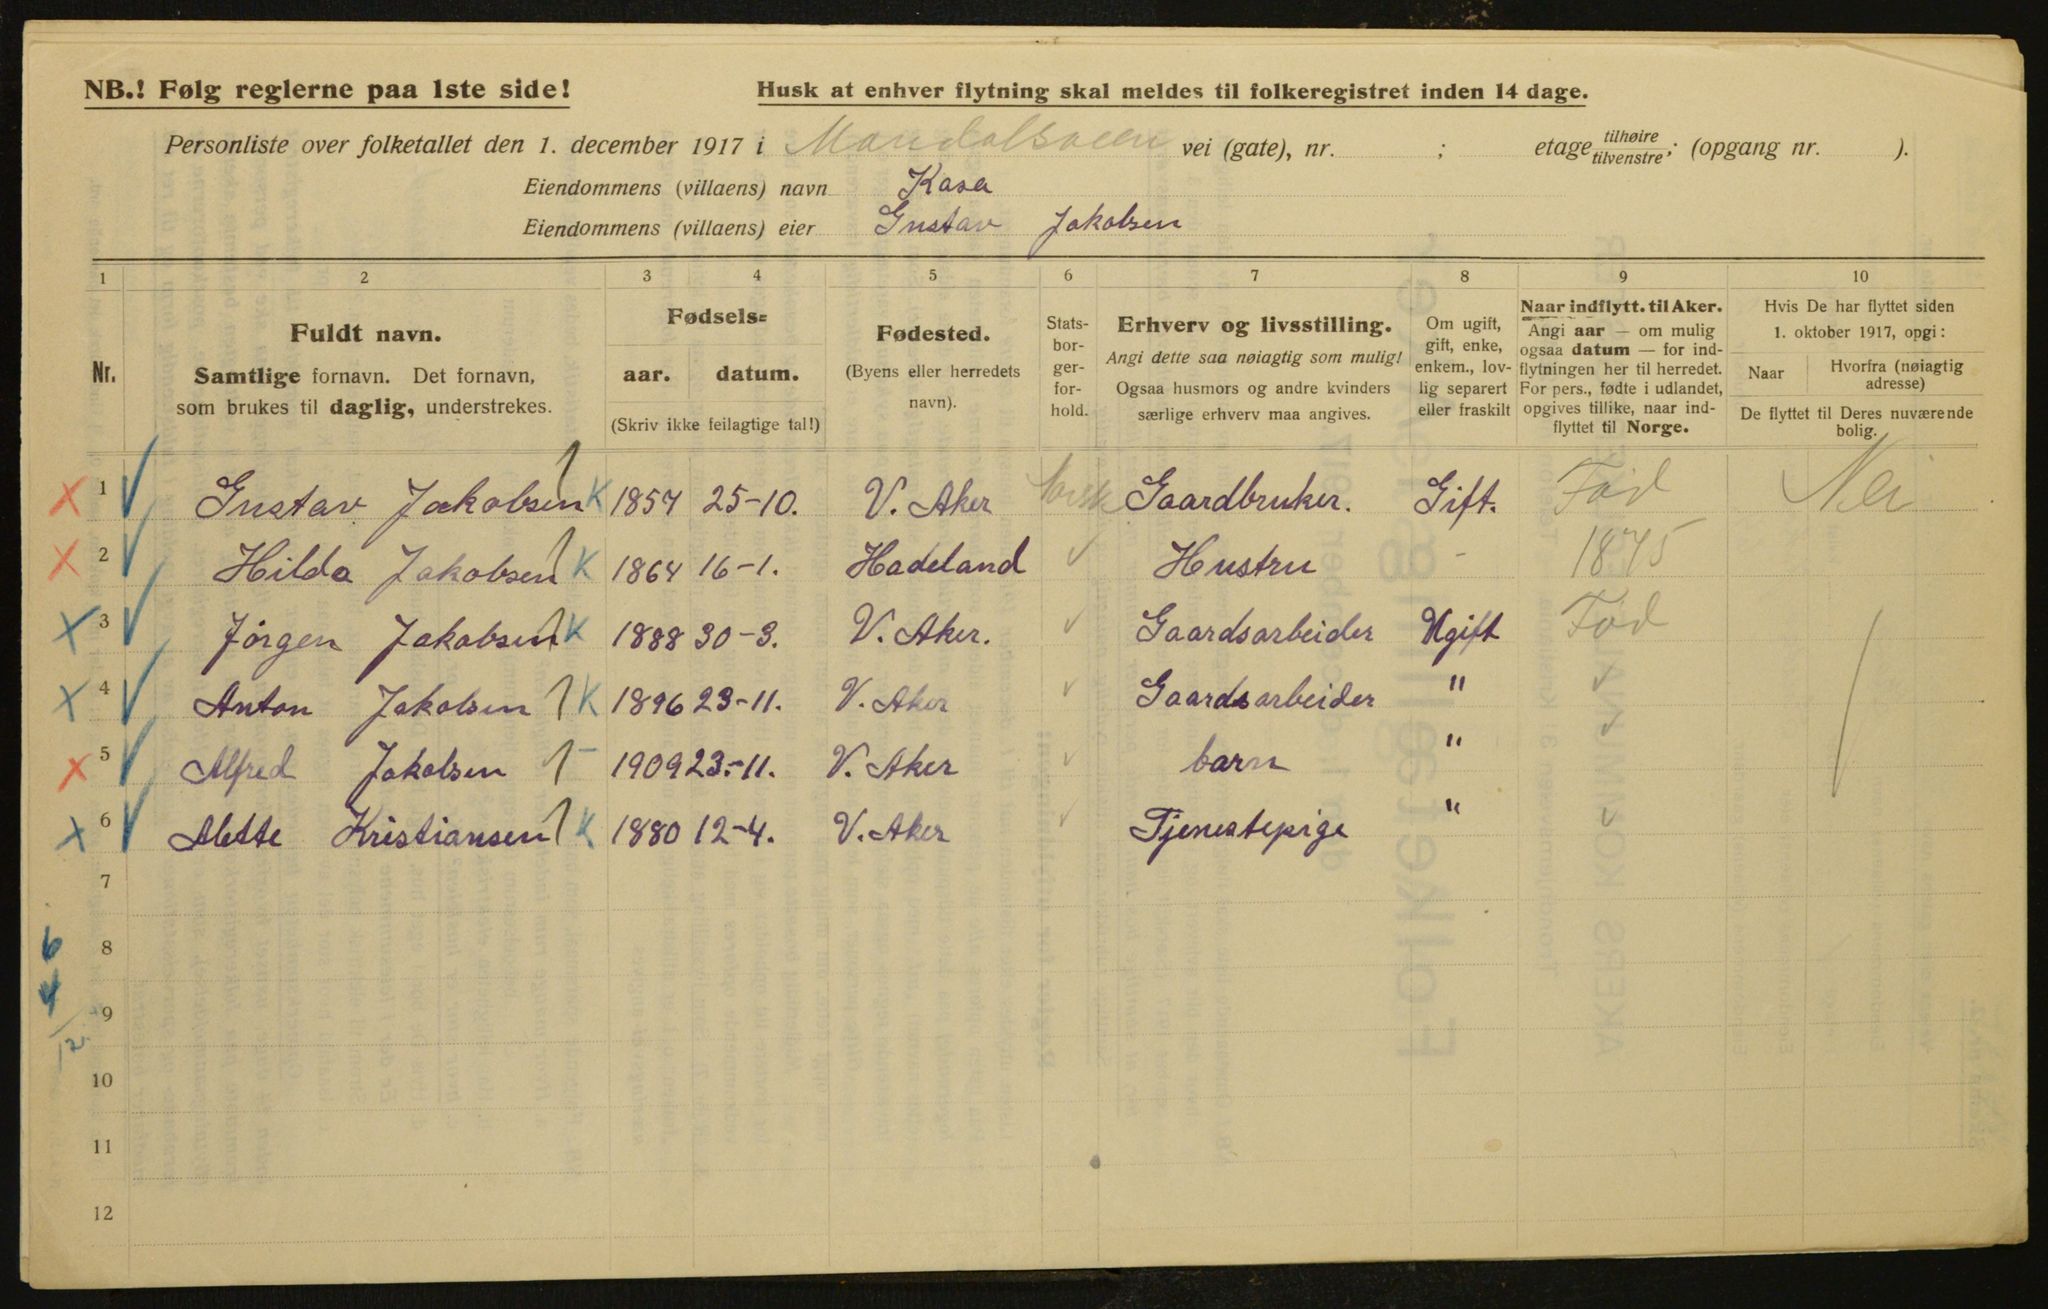 NB.! Følg reglerne paa 1ste side!
Husk at enhver flytning skal meldes til folkeregistret inden 14 dage.
Personliste over folketallet den 1. december 1917 i vei (gate), nr. ; etage tilhøire/tilvenstre; (opgang nr. ).
Eiendommens (villaens) navn Kasa
Eiendommens (villaens) eier Gustav Jakobsen
1 2 3 4 5 6 7 8 9 10
Nr. Fuldt navn. Samtlige fornavn. Det fornavn, som brukes til daglig, understrekes.
Fødsels= aar. datum. (Skriv ikke feilagtige tal!)
Fødested. (Byens eller herredets navn).
Stats-bor-ger-for-hold.
Erhverv og livsstilling. Angi dette saa nøiagtig som mulig! Ogsaa husmors og andre kvinders særlige erhverv maa angives.
Om ugift, gift, enke, enkem., lov-lig separert eller fraskilt
Naar indflytt. til Aker. Angi aar — om mulig ogsaa datum — for ind-flytningen her til herredet. For pers., fødte i udlandet, opgives tillike, naar ind-flyttet til Norge.
Hvis De har flyttet siden 1. oktober 1917, opgi: Naar Hvorfra (nøiagtig adresse) De flyttet til Deres nuværende bolig.
1 Gustav Jakobsen K 1857 25-10. V. Aker Norsk Gaardbruker. Gift. Fød Nei
2 Hilda Jakobsen K 1864 16-1. Hadeland Hustru - 1875
3 Jørgen Jakobsen K 1888 30-3. V. Aker. Gaardsarbeider Ugift Fød
4 Anton Jakobsen K 1896 23-11. V. Aker Gaardsarbeider "
5 Alfred Jakobsen - 1909 23.-11. V. Aker barn "
6 Alette Kristiansen K 1880 12-4. V. Aker Tjenestepige "
7
8
9
10
11
12